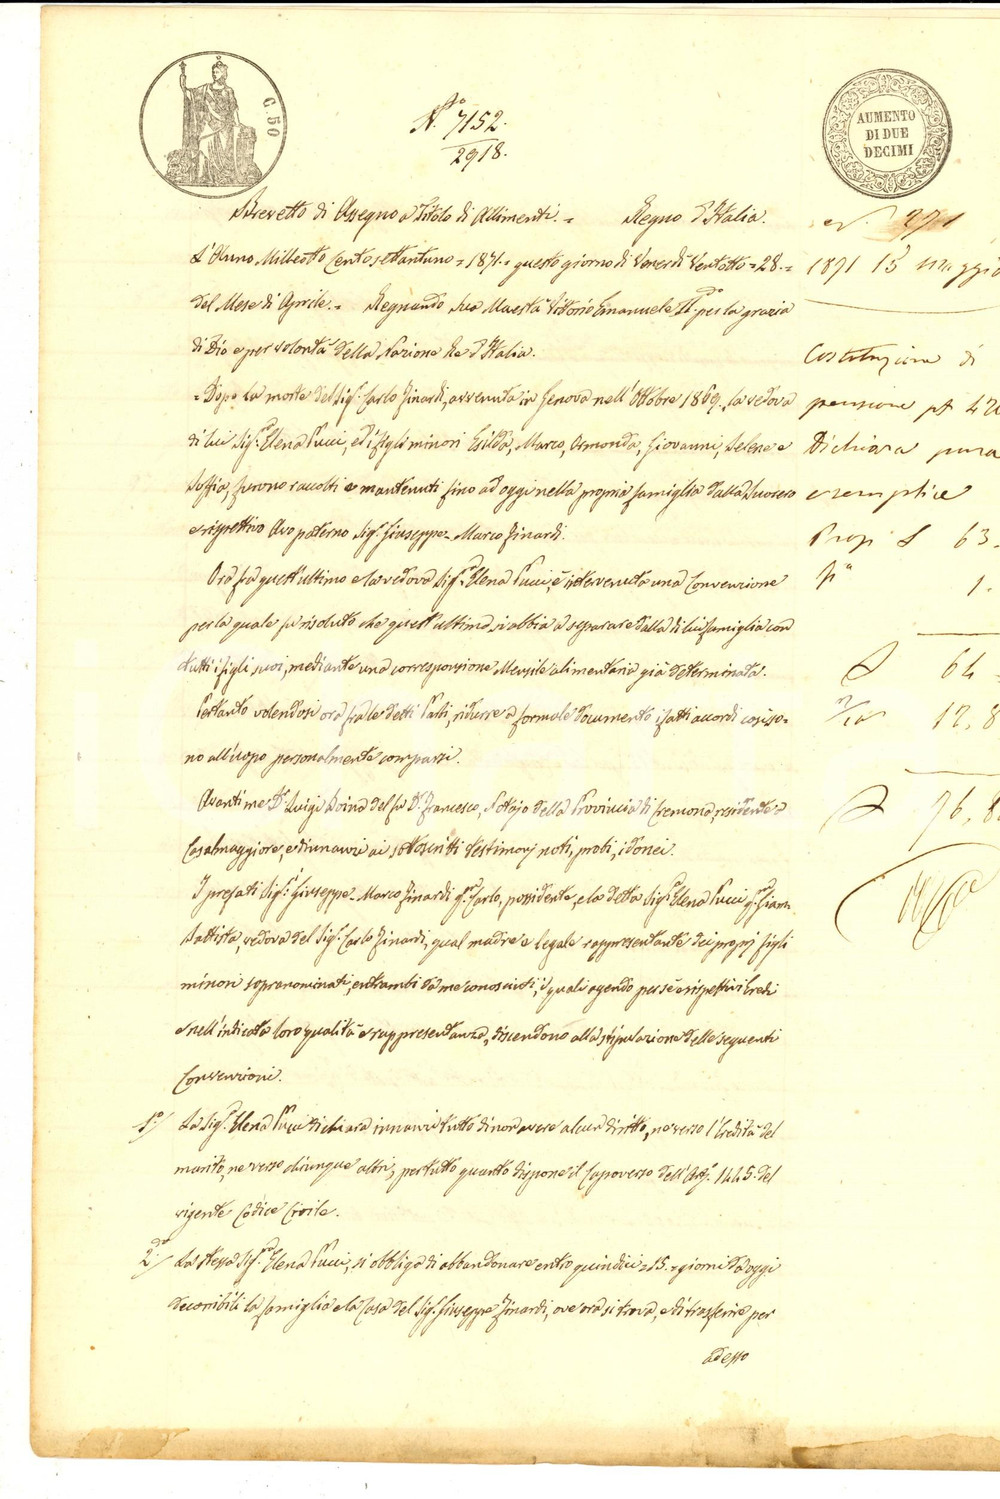 C. 50
AUMENTO
DI DUE
DECIMI
N.° 7152.
2918.
Brevetto di Assegno a Titolo di Allimenti. = Regno d'Italia.
L'Anno Milleotto Cento settantuno = 1871. = questo giorno di Venerdì Ventotto = 28. =
del Mese di Aprile. = Regnando Sua Maestà Vittorio Emanuele II.do per la grazia
di Dio e per volontà della Nazione Re d'Italia.
= Dopo la morte del Sig.r Carlo Zinardi, avvenuta in Genova nell'Ottobre 1869., la vedova
di lui Sig.ra Elena Pucci, ed i figli minori Esilda, Marco, Osmonda, Giovanni, Selene e
Soffia, furono raccolti e mantenuti fino ad oggi nella propria famiglia dalla Suocero
e rispettivo Avo paterno Sig.r Giuseppe = Marco Zinardi.
Ora fra quest'ultimo e la vedova Sig.ra Elena Pucci, è intervenuta una Convenzione
per la quale fu risoluto che quest'ultima si abbia a separare dalla di lui famiglia con
tutti i figli suoi, mediante una corresponsione Mensile alimentaria già determinata.
Pertanto volendosi ora fra le detti Parti, ridurre a formale documento i fatti accordi così so=
no all'uopo personalmente comparsi.
Avanti me D.r Luigi Boina del fu D.r Francesco, Notajo della Provincia di Cremona, residente a
Casalmaggiore, e dinnanzi ai sottoscritti testimonj noti, probi, idonei.
I prefati Sig.ri Giuseppe = Marco Zinardi q.m Carlo, possidente, e la detta Sig.ra Elena Pucci q.m Giam
Battista, vedova del Sig.r Carlo Zinardi, qual madre e legale rappresentante dei proprj figli
minori sopranominati, entrambi da me conosciuti, i quali agendo per sè e rispettivi Eredi
e nell'indicata loro qualità e rappresentanza, discendono alla stipulazione delle seguenti
Convenzioni.
1.°/ La Sig.ra Elena Pucci dichiara innanzi tutto di non avere alcun diritto, ne verso l'Eredità del
marito, ne verso chiunque altri, per tutto quanto dispone il Capoverso dell'Art.° 1445. del
vigente Codice Civile.
2.do/ La stessa Sig.ra Elena Pucci, si obbliga di abbandonare entro quindici = 15. = giorni da oggi
decorribili la famiglia e la Casa del Sig.r Giuseppe Zinardi, ove ora si trova, e di trasferire per
adesso
N. 271
1871 13 Maggio
Costituzione di
pensione
Dichiara pura
e semplice
Prop L 63.
1.
L 64
2/10 12,8
L 76,8